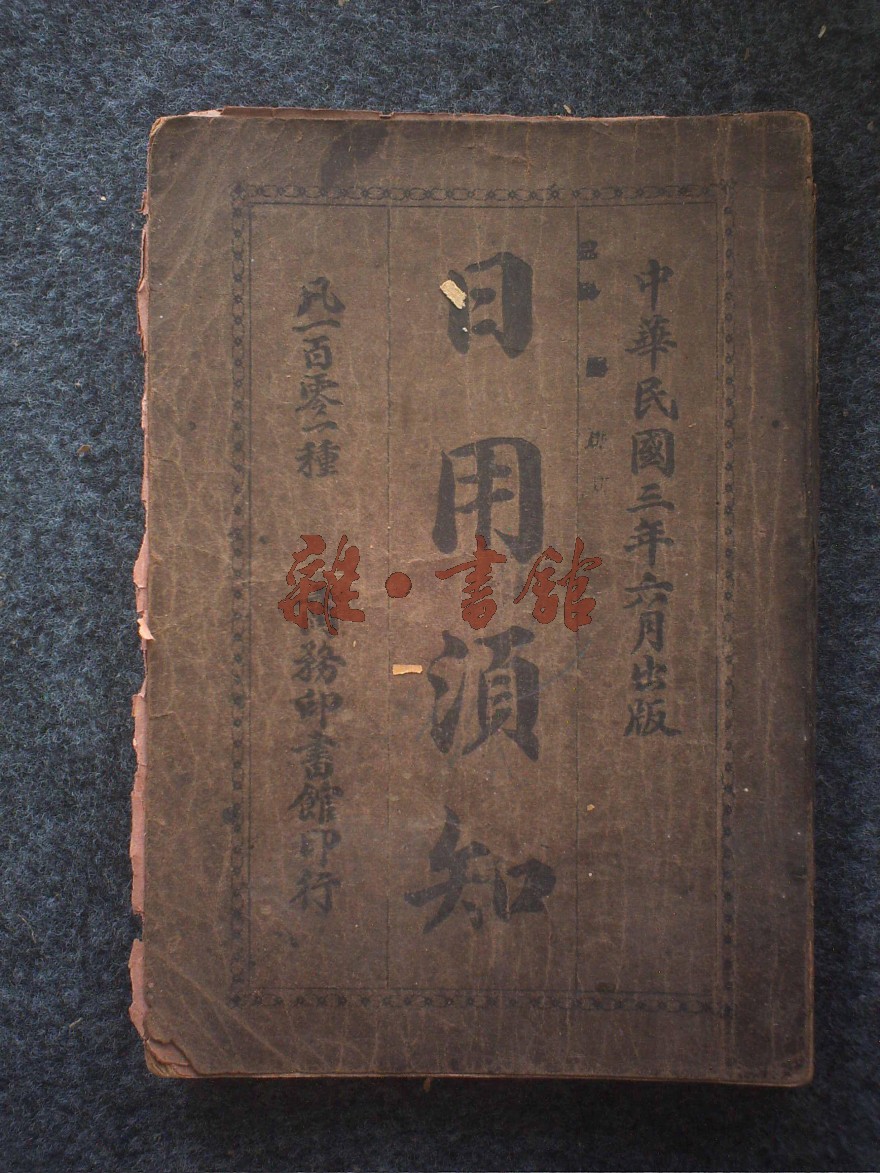 中華民國三年六月出版
日用須知
凡一百零一種
商務印書館印行
雜·書館